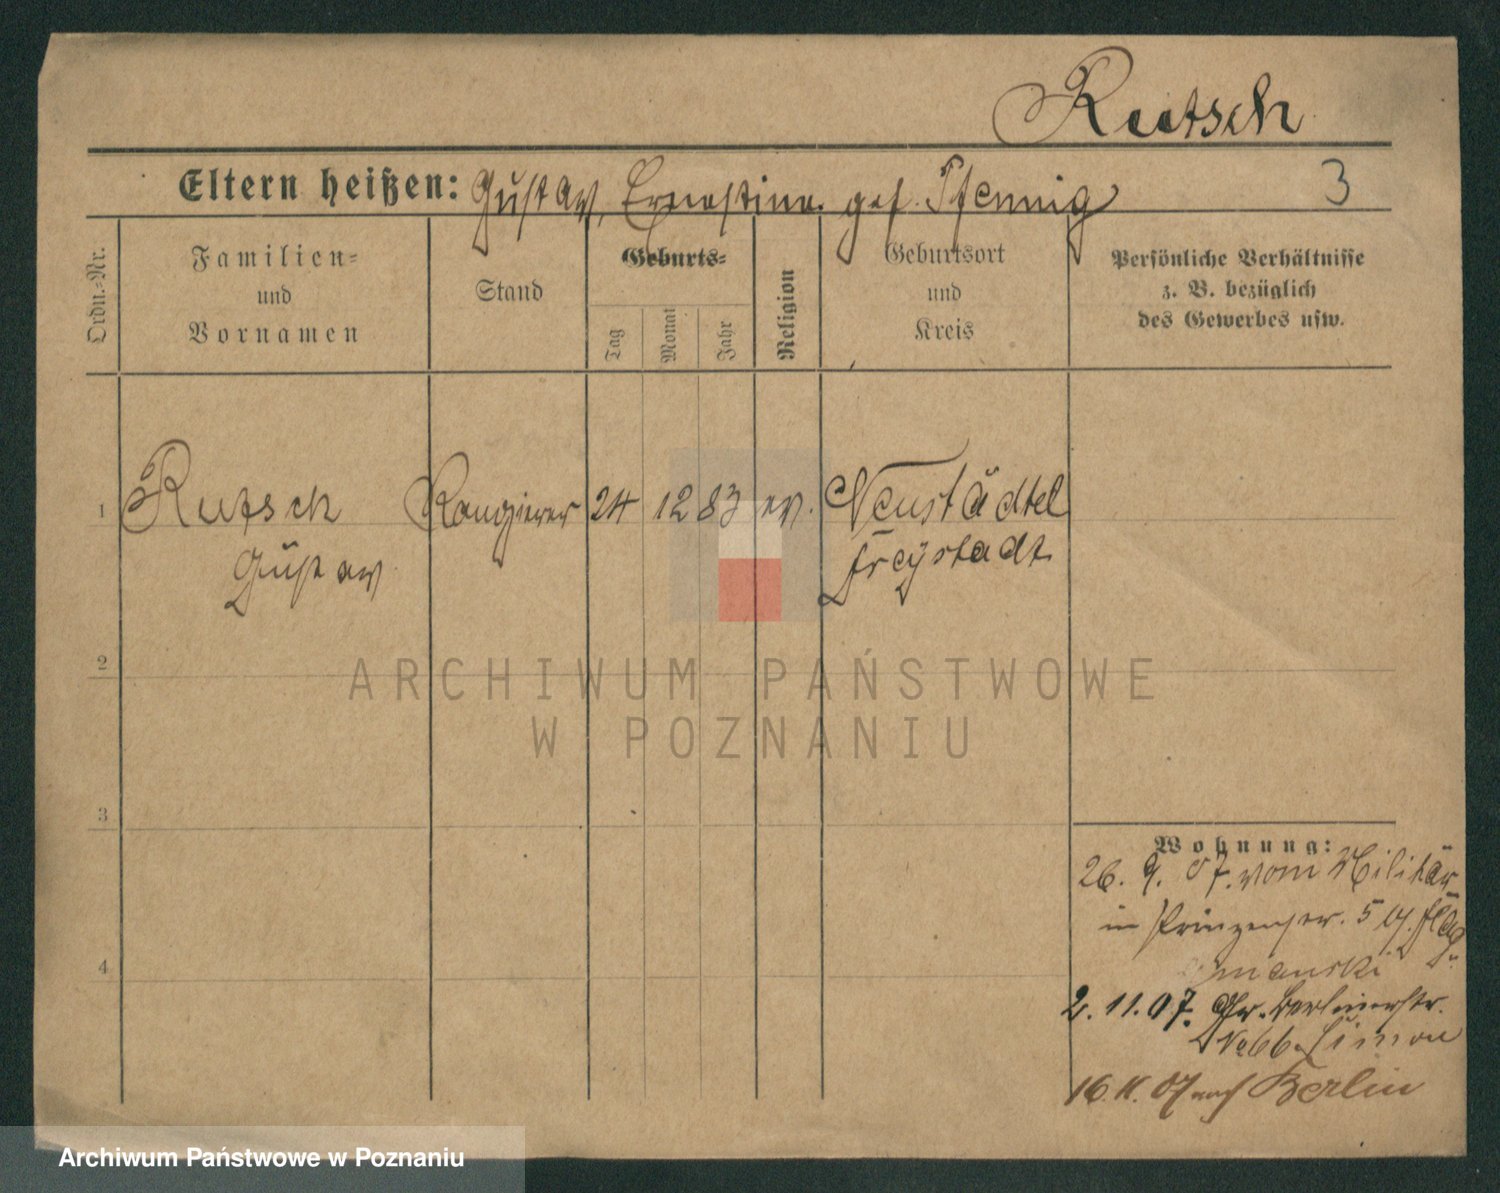 Rutsch
Eltern heißen: Gustav, Ernestine geb. Pfennig
3
Ordn.-Nr.
Familien-
und
Vornamen
Stand
Geburts-
Tag
Monat
Jahr
Religion
Geburtsort
und
Kreis
Persönliche Verhältnisse
z. B. bezüglich
des Gewerbes usw.
1 Rutsch Rangierer 24 12 83 ev. Neustädtel
Gustav Freystadt
2
3
4
Wohnung:
26. 9. 07. vom Militär
in Prinzenstr. 5
2. 11. 07. Gr. Berlinerstr.
No 66 Simon
16. 11. 07 nach Berlin
ARCHIWUM PAŃSTWOWE
W POZNANIU
Archiwum Państwowe w Poznaniu